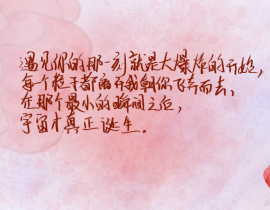 遇见你的那一刻就是大爆炸的开始,
每个粒子都离开我朝你飞奔而去,
在那个最小的瞬间之后,
宇宙才真正诞生。